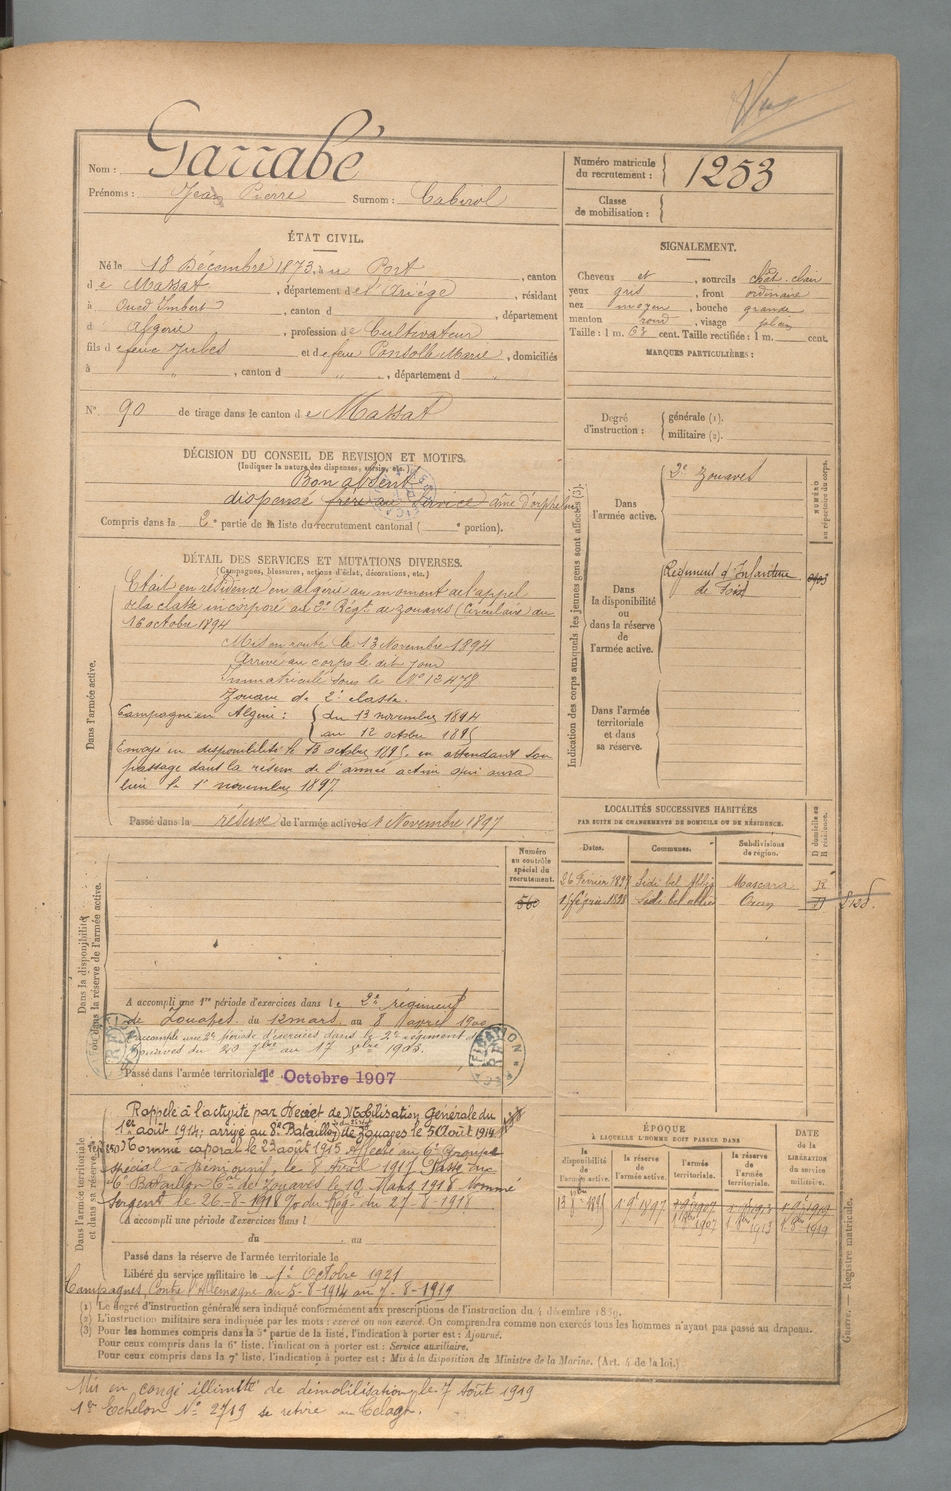 Nom : Garrabé
Prénoms : Jean Pierre Surnom : Cabirol
Numéro matricule du recrutement : 1253
Classe de mobilisation :
ÉTAT CIVIL.
Né le 18 Décembre 1873, à Port, canton
de Massat, département de l'Ariège, résidant
à Oued Imbert, canton d , département
d Algérie, profession de Cultivateur
fils de feu et de feue Marie, domiciliés
à " , canton d " , département d "
N° 90 de tirage dans le canton de Massat
SIGNALEMENT.
Cheveux et , sourcils chât. clair
yeux gris , front ordinaire
nez moyen , bouche grande
menton rond , visage plein
Taille : 1 m. 67 cent. Taille rectifiée : 1 m. cent.
MARQUES PARTICULIÈRES :
Degré d'instruction : générale (1). militaire (2).
DÉCISION DU CONSEIL DE REVISION ET MOTIFS.
(Indiquer la nature des dispenses, sursis, etc.)
Bon absent
dispensé frère au service aîné d'orphelins
Compris dans la 2e partie de la liste du recrutement cantonal ( e portion).
DÉTAIL DES SERVICES ET MUTATIONS DIVERSES.
(Campagnes, blessures, actions d'éclat, décorations, etc.)
Dans l'armée active.
Etait en résidence en algérie au moment de l'appel
de la classe incorporé au Régt de zouaves (Circulaire du
16 octobre 1894
Mis en route le 13 Novembre 1894
Arrivé au corps le dit jour
Immatriculé sous le N° 12478
Zouave de 2e classe.
Campagne en Algérie : du 13 novembre 1894
au 12 octobre 1895
Envoyé en disponibilité le 13 octobre 1895, en attendant son
passage dans la réserve de l'armée active qui aura
lieu le 1er novembre 1897
Passé dans la réserve de l'armée active le 1 Novembre 1897
Indication des corps auxquels les jeunes gens sont affectés (3).
NUMÉRO au répertoire du corps.
Dans l'armée active.
2e Zouaves
Dans la disponibilité ou dans la réserve de l'armée active.
Régiment d'Infanterie
de Foix
Dans l'armée territoriale et dans sa réserve.
LOCALITÉS SUCCESSIVES HABITÉES
PAR SUITE DE CHANGEMENTS DE DOMICILE OU DE RÉSIDENCE.
Dates. Communes. Subdivisions de région. D domicile ou R résidence.
26 Février 1897 Sidi bel Abbès Mascara R
1898 Sidi bel abbès Oran
Dans la disponibilité ou dans la réserve de l'armée active.
Numéro au contrôle spécial du recrutement.
560
A accompli une 1re période d'exercices dans le 2e régiment
de Zouaves du 12 mars au 8 avril 1900
a accompli une 2e période d'exercices dans le 2e régiment de
Zouaves du 20 7bre au 17 1903.
Passé dans l'armée territoriale le 1er Octobre 1907
Dans l'armée territoriale et dans sa réserve.
Rappelé à l'activité par Décret de Mobilisation Générale du
1er août 1914 ; arrivé au 8e Bataillon de Zouaves le 5 Août 1914
Nommé caporal le 22 août 1915 Affecté au 6e Groupe
spécial à le 8 Avril 1917 Passé au
6e Bataillon Tal de Zouaves le 10 Mars 1918 Nommé
Sergent le 26-8-1918 du Rég. du 27-8-1918
A accompli une période d'exercices dans l
du au
Passé dans la réserve de l'armée territoriale le
Libéré du service militaire le 1er Octobre 1921
Campagnes Contre l'Allemagne du 5-8-1914 au 7-8-1919
ÉPOQUE
À LAQUELLE L'HOMME DOIT PASSER DANS
la disponibilité de l'armée active. la réserve de l'armée active. l'armée territoriale. la réserve de l'armée territoriale. DATE DE LA LIBÉRATION du service militaire.
13 8bre 1895 1897 1907 1913 1919
1907 1913 1919
(1) Le degré d'instruction générale sera indiqué conformément aux prescriptions de l'instruction du 4 décembre 1889.
(2) L'instruction militaire sera indiquée par les mots : exercé ou non exercé. On comprendra comme non exercés tous les hommes n'ayant pas passé au drapeau.
(3) Pour les hommes compris dans la 5e partie de la liste, l'indication à porter est : Ajourné.
Pour ceux compris dans la 6e liste, l'indication à porter est : Service auxiliaire.
Pour ceux compris dans la 7e liste, l'indication à porter est : Mis à la disposition du Ministre de la Marine. (Art. 4 de la loi.)
Guerre. — Registre matricule.
Mis en congé illimité de démobilisation le 7 Août 1919
1er Echelon N° 2719 se retire au Telagh.